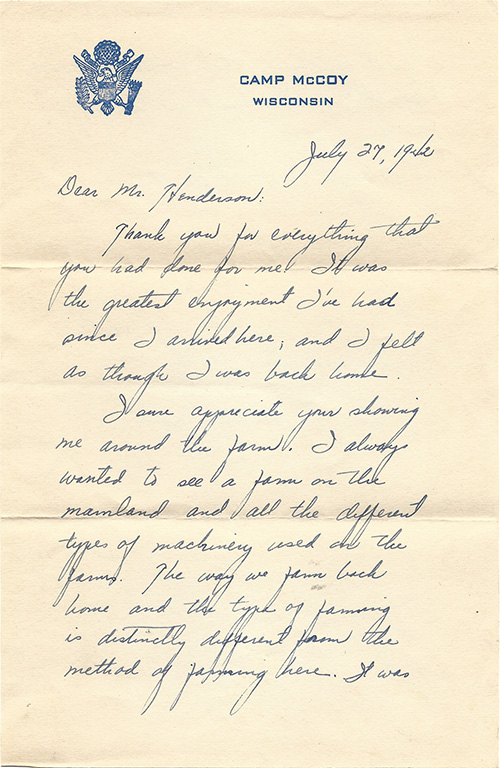 CAMP McCOY
WISCONSIN
July 27, 1942
Dear Mr. Henderson:
Thank you for everything that
you had done for me. It was
the greatest enjoyment I've had
since I arrived here; and I felt
as though I was back home.
I sure appreciate your showing
me around the farm. I always
wanted to see a farm on the
mainland and all the different
types of machinery used on the
farms. The way we farm back
home and the type of farming
is distinctly different from the
method of farming here. It was